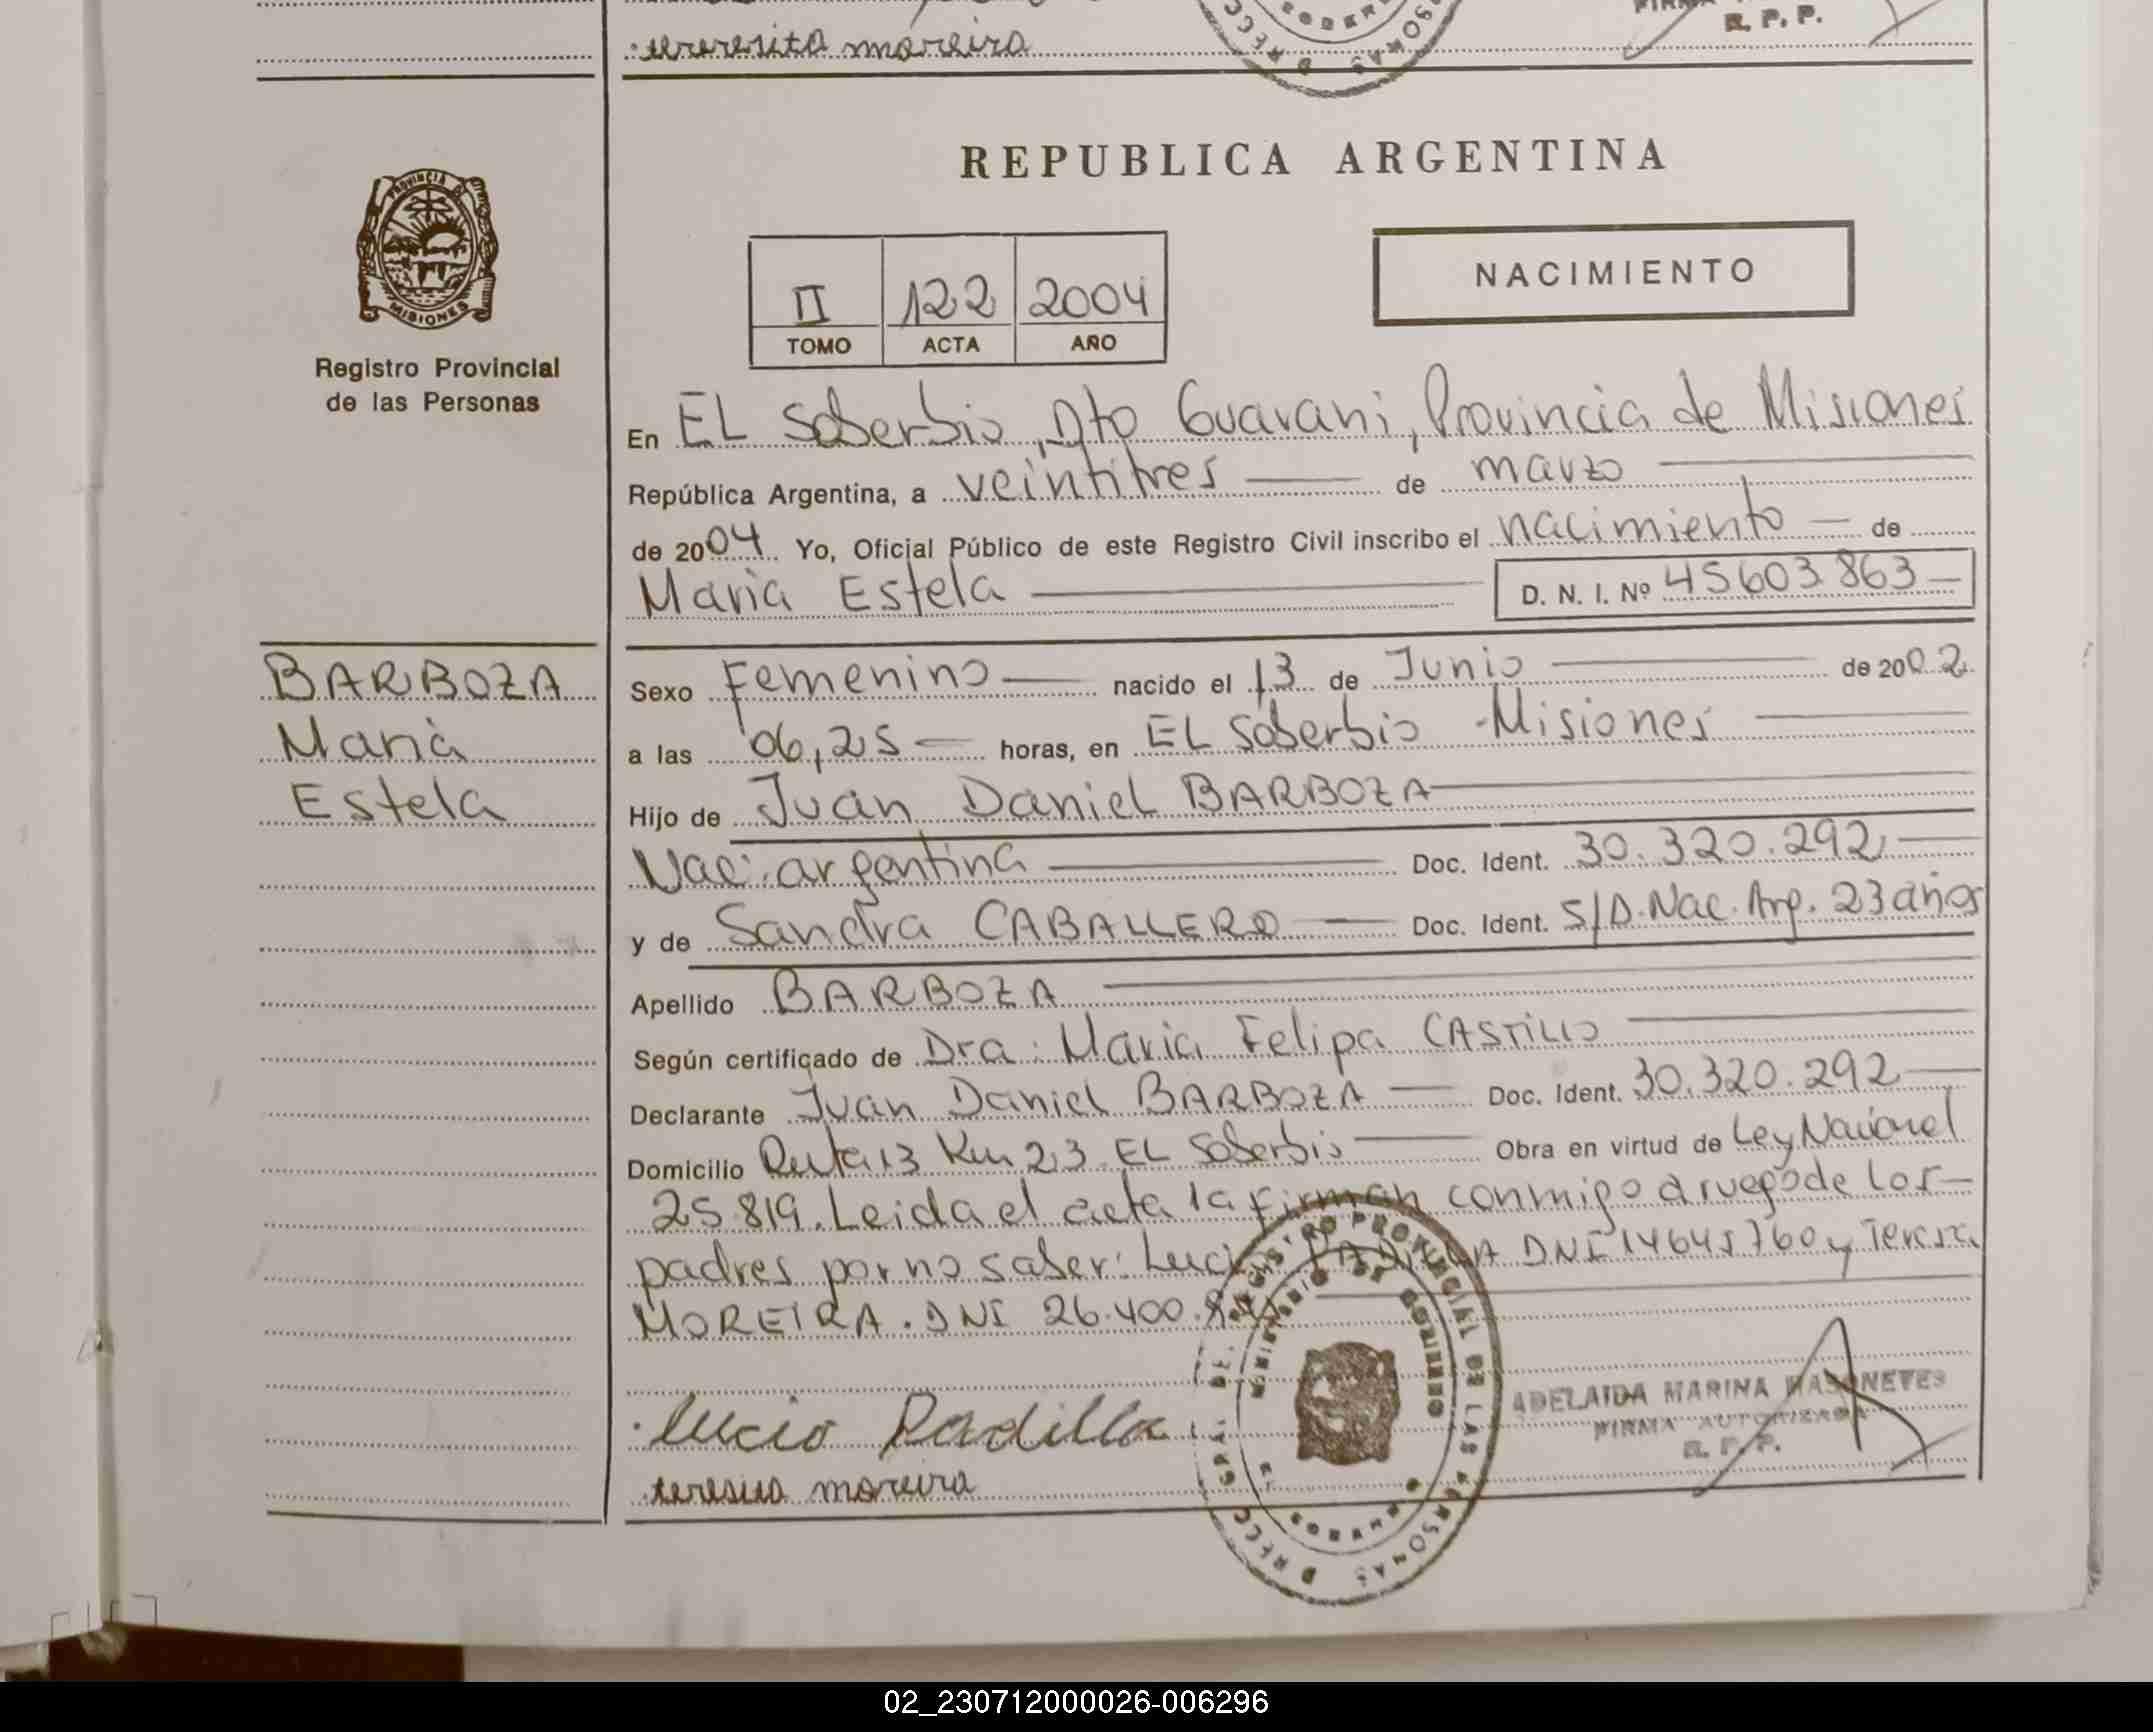 teresita moreira
R. P. P.
REPUBLICA ARGENTINA
PROVINCIA DE
MISIONES
Registro Provincial
de las Personas
II 122 2004
TOMO ACTA AÑO
NACIMIENTO
En EL Soberbio, Dto Guarani, Provincia de Misiones
República Argentina, a veintitres de marzo
de 2004 Yo, Oficial Público de este Registro Civil inscribo el nacimiento de
Maria Estela D. N. I. Nº 45603863
BARBOZA
Maria
Estela
Sexo Femenino nacido el 13 de Junio de 2002
a las 06,25 horas, en EL Soberbio - Misiones
Hijo de Juan Daniel BARBOZA
Nac. argentina Doc. Ident. 30.320.292
y de Sandra CABALLERO Doc. Ident. S/D. Nac. Arg. 23 años
Apellido BARBOZA
Según certificado de Dra. Maria Felipa CASTILLO
Declarante Juan Daniel BARBOZA Doc. Ident. 30.320.292
Domicilio Ruta 13 Km 23 EL Soberbio Obra en virtud de Ley Nacional
25.819. Leida el acta la firman conmigo a ruego de los
padres por no saber: Lucio PADILLA DNI 14645760 y Teresa
MOREIRA. DNI 26.400.
Lucio Padilla
teresita moreira
REGISTRO PROVINCIAL DE LAS PERSONAS
MINISTERIO DE GOBIERNO
ADELAIDA MARINA MASONEVES
FIRMA AUTORIZADA
R. P. P.
02_230712000026-006296